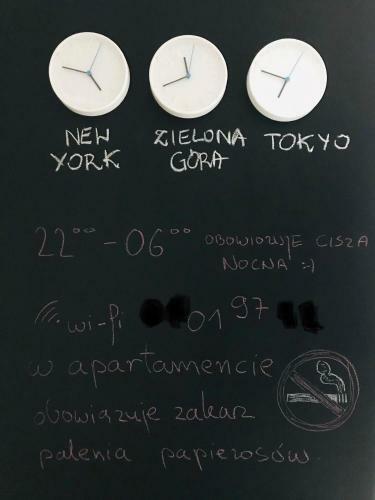 NEW YORK
ZIELONA GÓRA
TOKYO
22°° - 06°° OBOWIĄZUJE CISZA
NOCNA :-)
wi-fi 01 97
w apartamencie
obowiązuje zakaz
palenia papierosów.